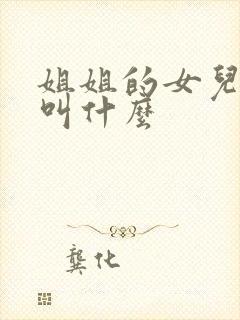 姐姐的女兒
叫什麼
龔化